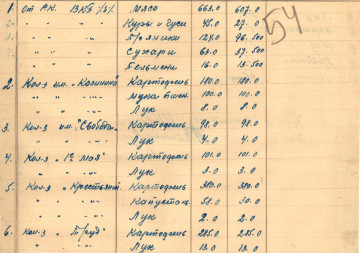 1 От РК. ВКП /б/. Мясо 663.0 607.0
" " " Куры и Гуси 45.0 27.0
" " " Пряники 124.0 96.500
" " " Сухари 63.0 37.500
" " " Пельмени 16.0 13.500
2. Кол-з им. "Калинина" Картофель 180.0 180.0
" " " Мука пшен. 100.0 100.0
" " " Лук 8.0 8.0
3. Кол-з им. "Свобода" Картофель 98.0 98.0
" " " Лук 4.0 4.0
4. Кол-з "1е мая" Картофель 101.0 101.0
" " " Лук 3.0 3.0
5. Кол-з "Крестьянин" Картофель 380.0 380.0
" " " Капуста 50.0 30.0
" " " Лук 2.0 2.0
6. Кол-з "Труд" Картофель 285.0 285.0
" " " Лук 13.0 13.0
54